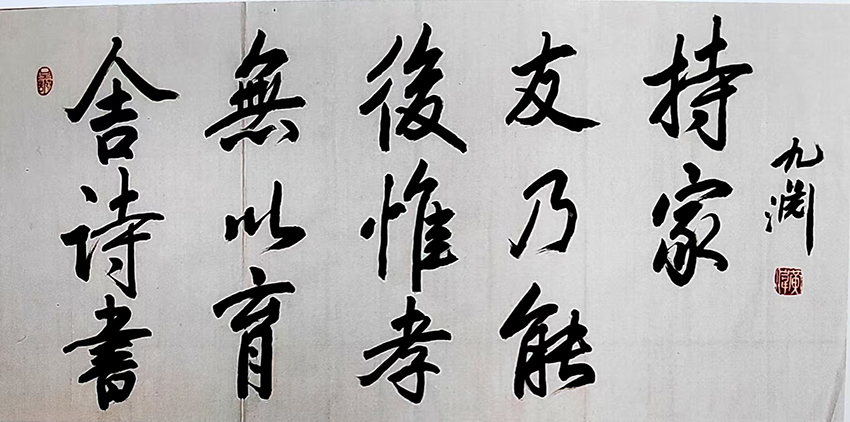 舍诗書
無以育
後惟孝
友乃能
持家
九渊